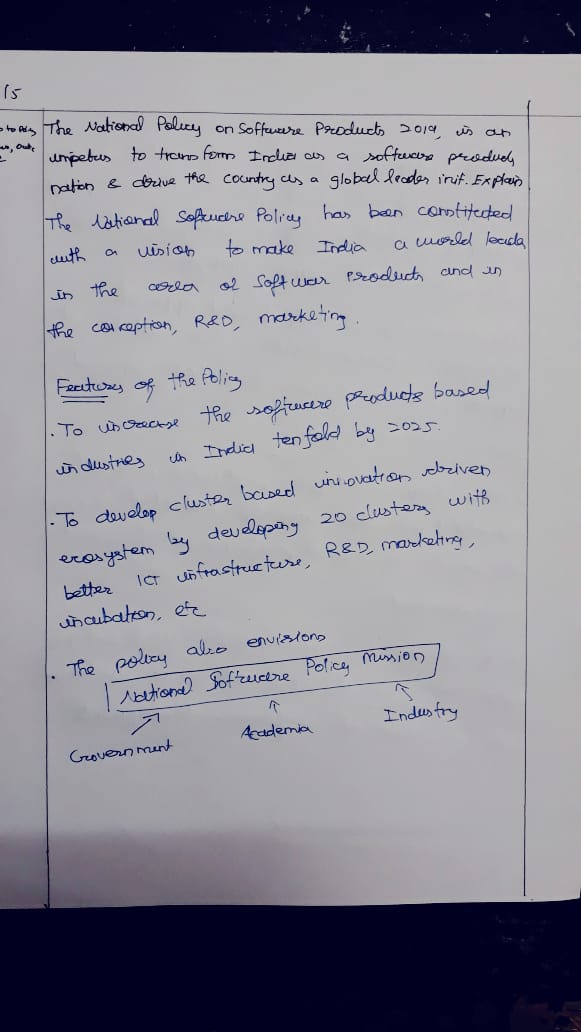 15
The National Policy on Software Products 2019, is an
impetus to transform India as a software product
nation & drive the country as a global leader in it. Explain
The National Software Policy has been constituted
with a vision to make India a world leader
in the area of Software products and in
the conception, R&D, marketing.
Features of the Policy
. To increase the software products based
industries in India ten fold by 2025.
. To develop cluster based innovation driven
ecosystem by developing 20 clusters with
better ICT infrastructure, R&D, marketing,
incubation, etc
. The policy also envisions
National Software Policy Mission
Government Academia Industry